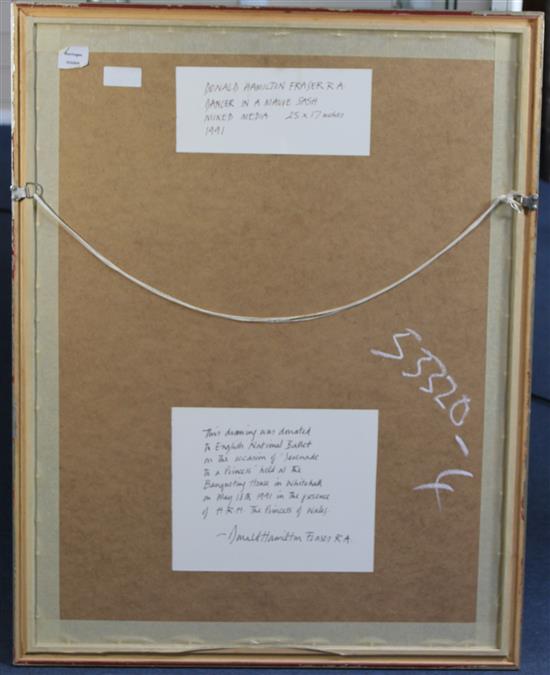 DONALD HAMILTON FRASER R.A.
DANCER IN A MAUVE SASH
MIXED MEDIA 25 x 17 inches
1991
53320-4
This drawing was donated
to English National Ballet
on the occasion of 'Serenade
to a Princess' held at the
Banqueting House in Whitehall
on May 18th 1991 in the presence
of H.R.H. The Princess of Wales.
- Donald Hamilton Fraser R.A.